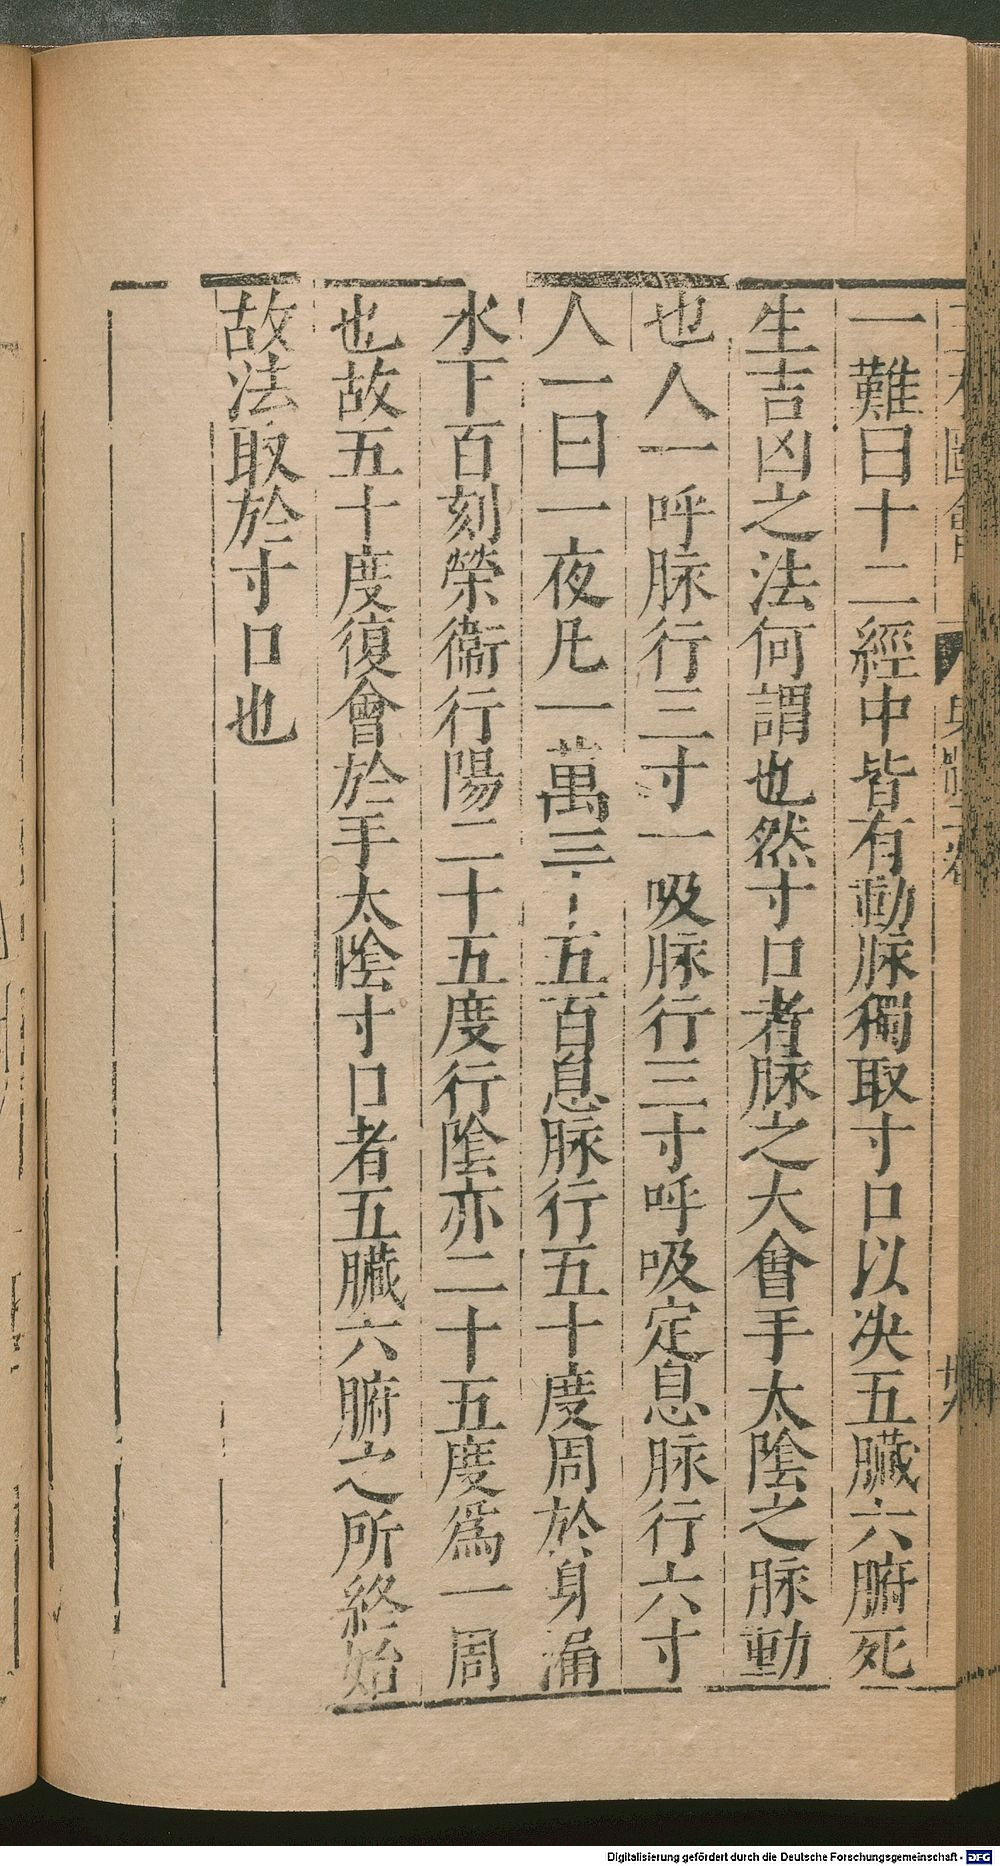 一難曰十二經中皆有動脉獨取寸口以决五臓六腑死
生吉凶之法何謂也然寸口者脉之大會手太陰之脉動
也人一呼脉行三寸一吸脉行三寸呼吸定息脉行六寸
人一日一夜凡一萬三千五百息脉行五十度周於身漏
水下百刻榮衞行陽二十五度行陰亦二十五度爲一周
也故五十度復會於手太陰寸口者五臓六腑之所終始
故法取於寸口也
Digitalisierung gefördert durch die Deutsche Forschungsgemeinschaft - DFG